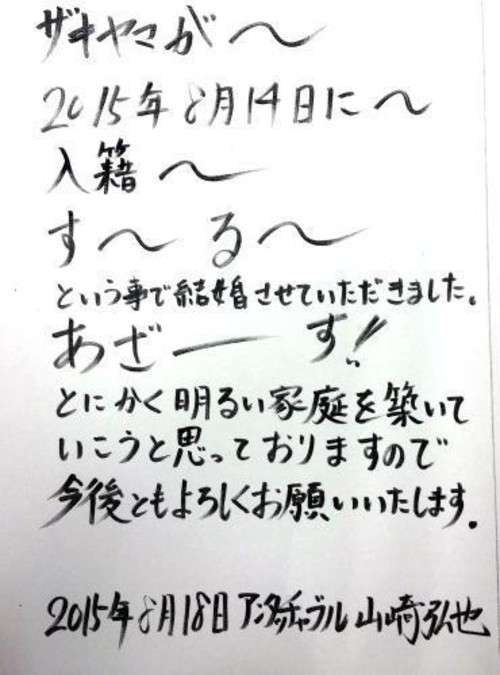 ザキヤマが〜
2015年8月14日に〜
入籍〜
す〜る〜
という事で結婚させていただきました。
あざーーす!!
とにかく明るい家庭を築いて
いこうと思っておりますので
今後ともよろしくお願いいたします。
2015年8月18日 アンタッチャブル 山崎弘也